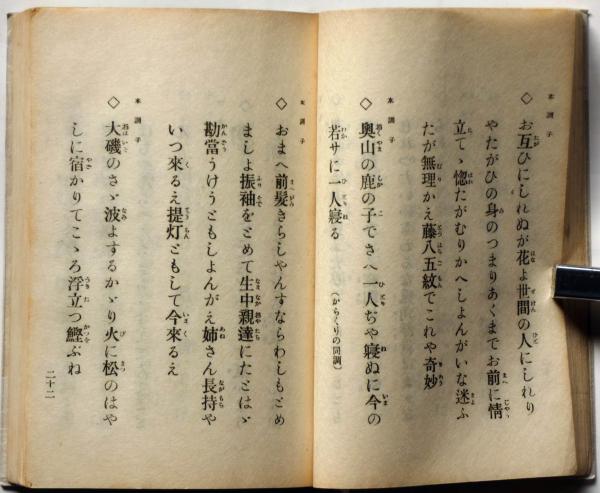 ◇お互ひにしれぬが花よ世間の人にしれり
やたがひの身のつまりあくまでお前に情
立てゝ惚たがむりかへしよんがいな迷ふ
たが無理かえ藤八五紋でこれや奇妙
本調子
◇奥山の鹿の子でさへ一人ぢや寝ぬに今の
若サに一人寝る（からくりの同調）
本調子
◇おまへ前髪きらしやんすならわしもとめ
ましよ振袖をとめて生中親達にたとはゞ
勘當うけうともしよんがえ姉さん長持や
いつ來るえ提灯ともして今來るえ
本調子
◇大磯のさゞ波よするかゞり火に松のはや
しに宿かりてこゝろ浮立つ鰹ぶね
二十二